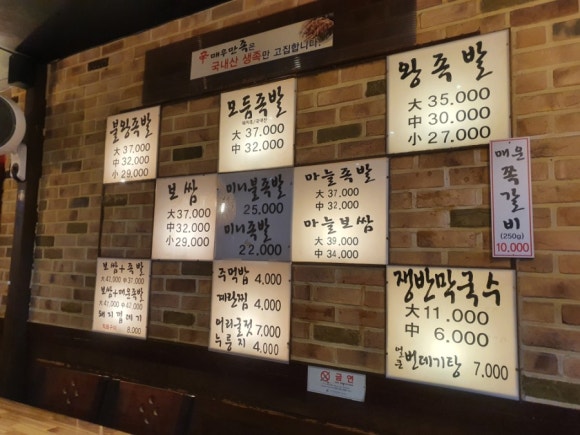 매우만족은
국내산 생족만 고집합니다!
불왕족발
大 37.000
中 32.000
小 29.000
모둠족발
大 37.000
中 32.000
왕족발
大 35.000
中 30.000
小 27.000
보쌈
大 37.000
中 32.000
小 29.000
미니불족발
25.000
미니족발
22.000
마늘족발
大 37.000
中 32.000
마늘보쌈
大 39.000
中 34.000
매운 쪽갈비
(250g)
10,000
보쌈+족발
大 41.000 中 37.000
보쌈+매운족발
大 42.000 中
돼지껍데기
8.000
주먹밥 4.000
계란찜 4.000
어리굴젓 7.000
누룽지 4.000
쟁반막국수
大 11.000
中 6.000
얼큰 번데기탕 7.000
금연